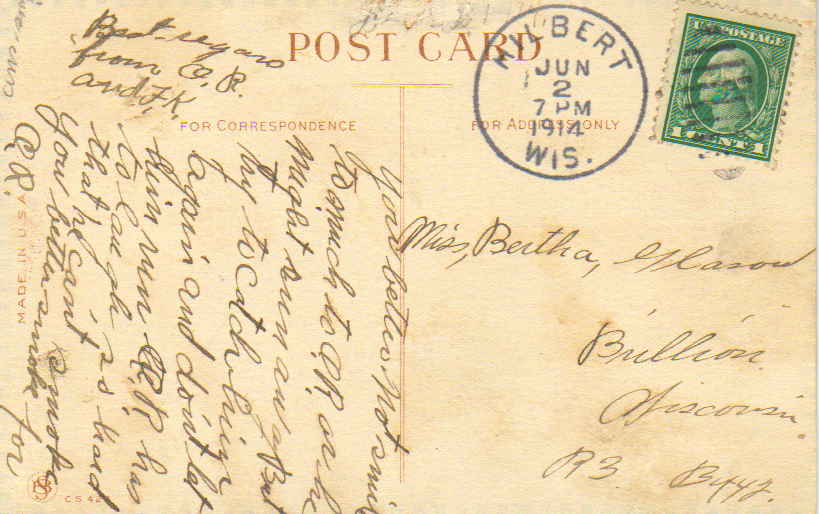 POST CARD
HILBERT
JUN
2
7 PM
1914
WIS.
U.S. POSTAGE
1 CENT 1
FOR CORRESPONDENCE
FOR ADDRESS ONLY
Best regards
from O. R.
and F.K.
You better not smile
to much to O.R. or he
might run away But
try to catch him
again and don't let
him run O.R. has
to laugh so hard
that he can't smoke
You better smoke for
O.R.
Miss, Bertha,
Brillion
Wisconsin.
R3.
MADE IN U.S.A.
C S 42